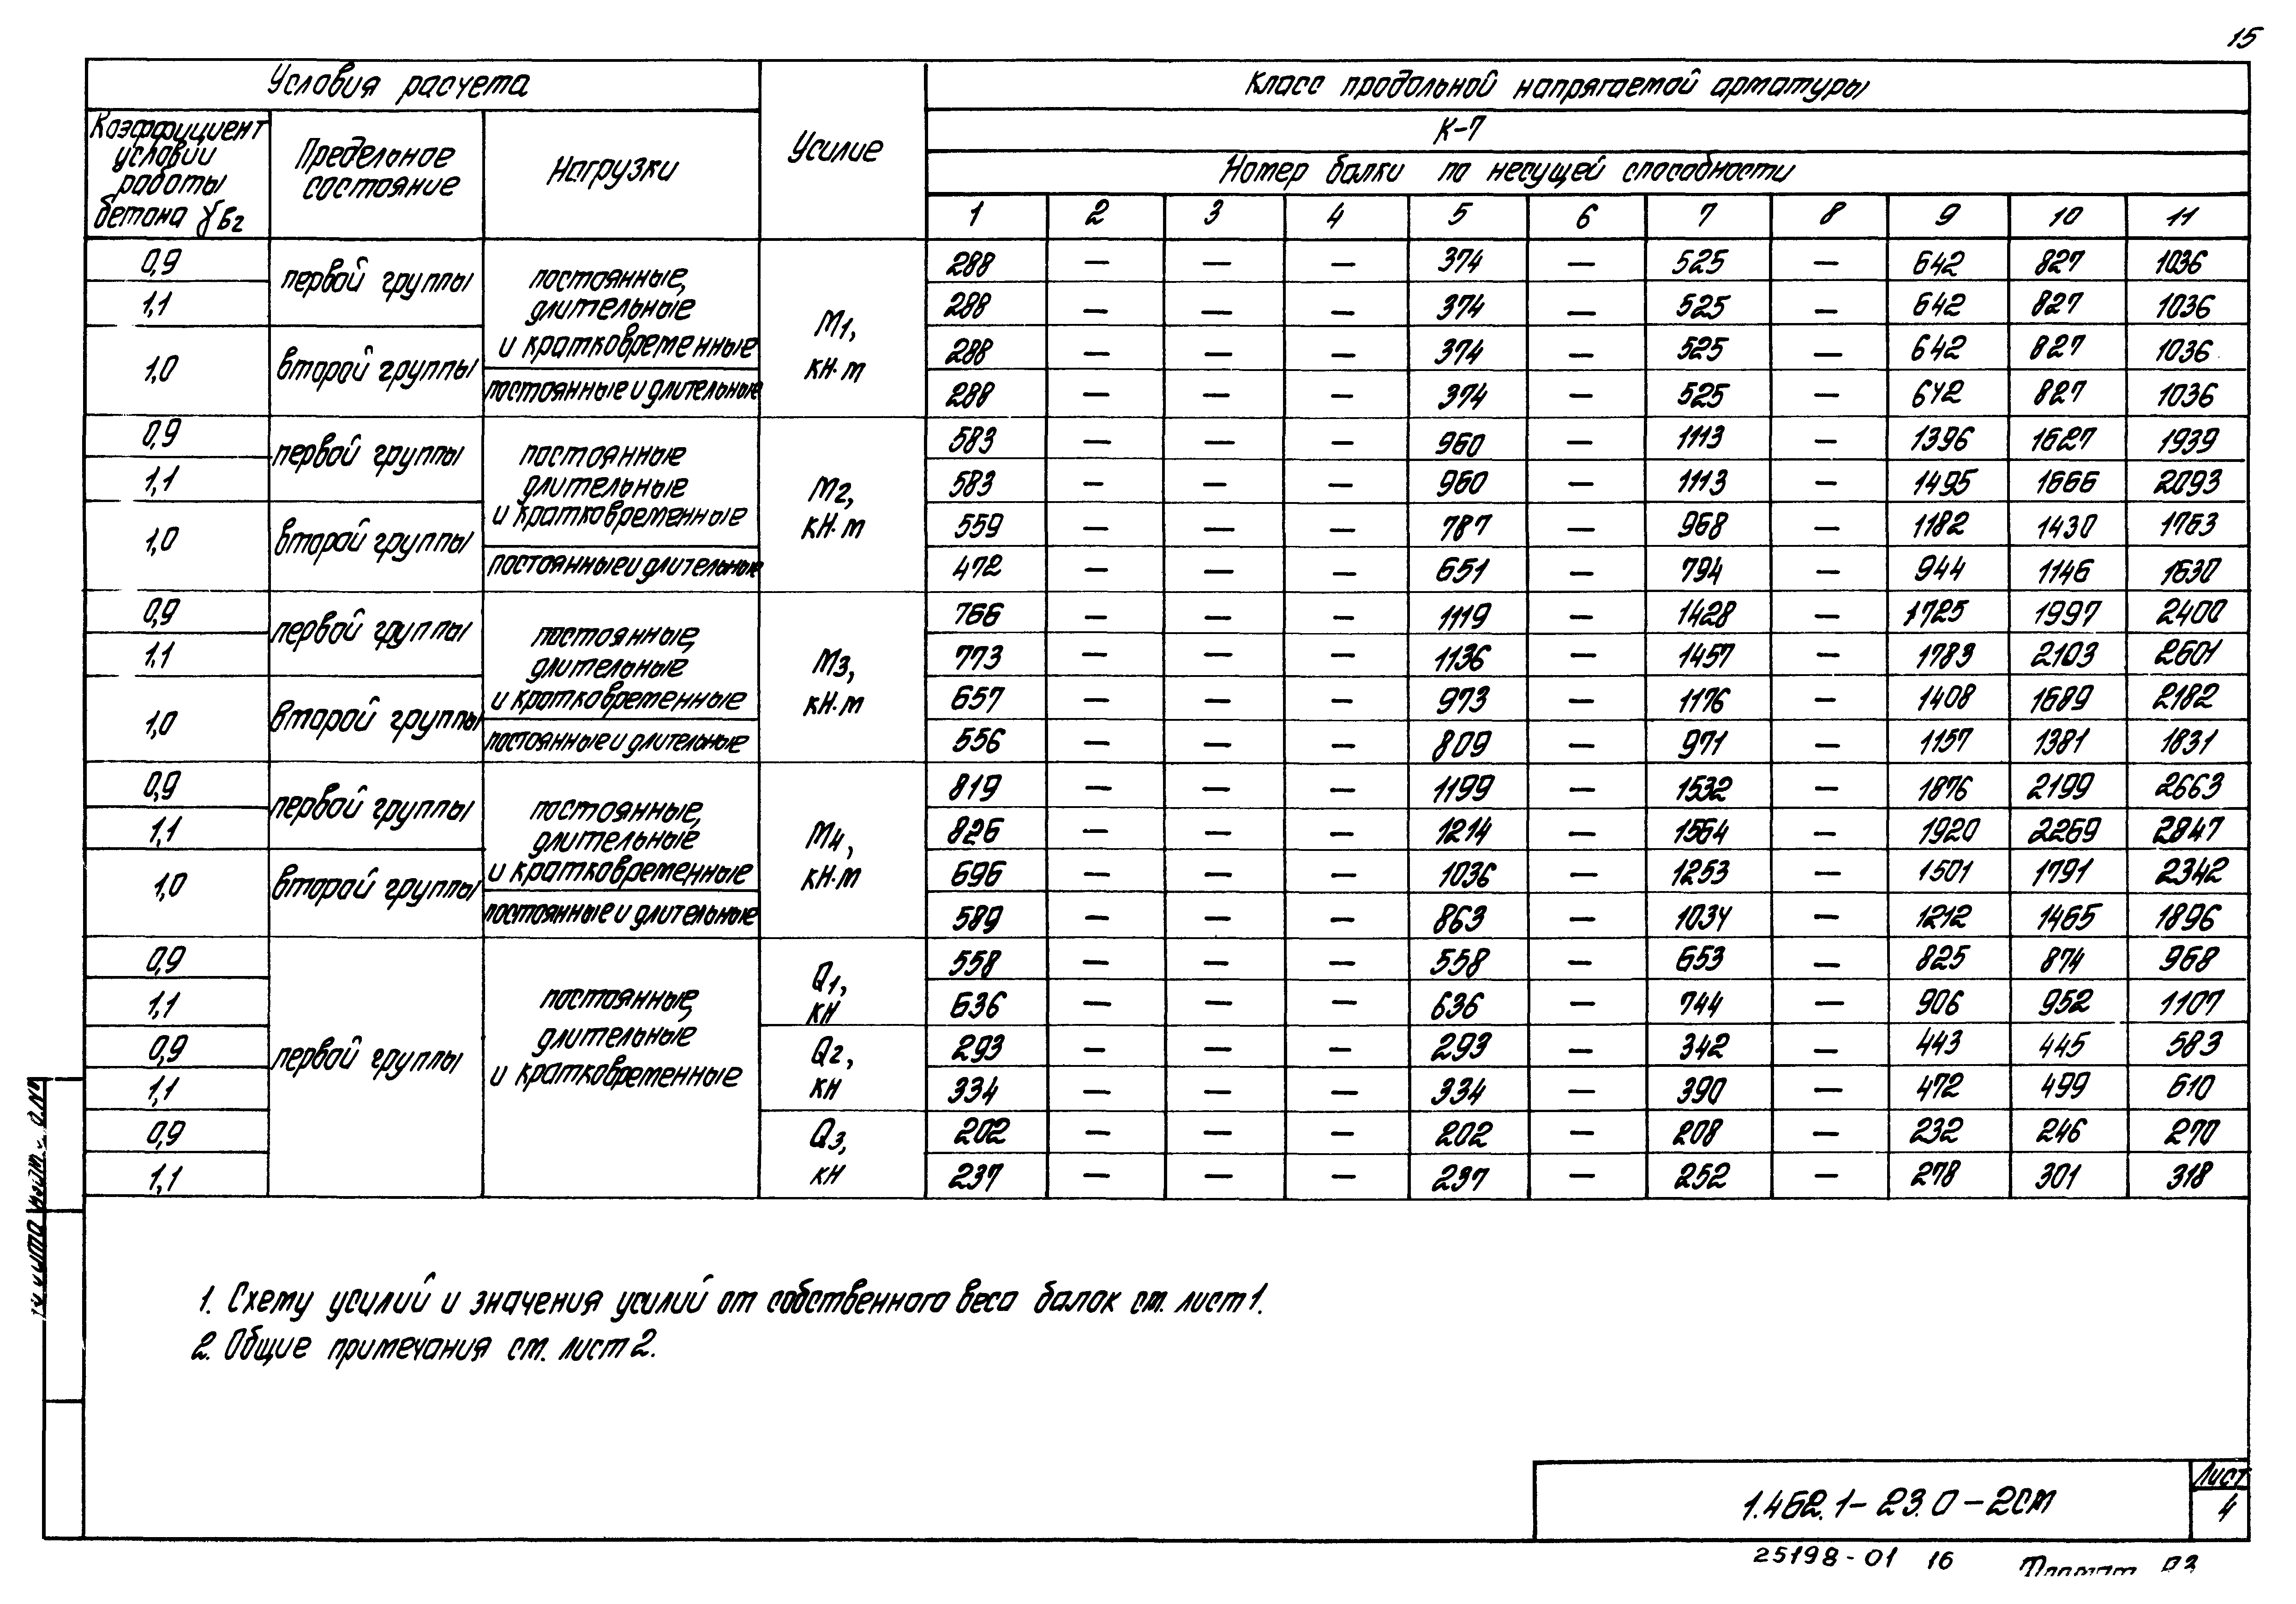 15
Условия расчета
Усилие
Класс продольной напрягаемой арматуры
Коэффициент условий работы бетона γб2
Предельное состояние
Нагрузки
К-7
Номер балки по несущей способности
1 2 3 4 5 6 7 8 9 10 11
0,9 первой группы постоянные, длительные и кратковременные М1, кН·м 288 — — — 374 — 525 — 642 827 1036
1,1 288 — — — 374 — 525 — 642 827 1036
1,0 второй группы 288 — — — 374 — 525 — 642 827 1036
постоянные и длительные 288 — — — 374 — 525 — 642 827 1036
0,9 первой группы постоянные длительные и кратковременные М2, кН·м 583 — — — 960 — 1113 — 1396 1627 1939
1,1 583 — — — 960 — 1113 — 1495 1666 2093
1,0 второй группы 559 — — — 787 — 968 — 1182 1430 1763
постоянные и длительные 472 — — — 651 — 794 — 944 1146 1630
0,9 первой группы постоянные, длительные и кратковременные М3, кН·м 766 — — — 1119 — 1428 — 1725 1997 2400
1,1 773 — — — 1136 — 1457 — 1783 2103 2601
1,0 второй группы 657 — — — 973 — 1176 — 1408 1689 2182
постоянные и длительные 556 — — — 809 — 971 — 1157 1381 1831
0,9 первой группы постоянные, длительные и кратковременные М4, кН·м 819 — — — 1199 — 1532 — 1876 2199 2663
1,1 826 — — — 1214 — 1564 — 1920 2269 2847
1,0 второй группы 696 — — — 1036 — 1253 — 1501 1791 2342
постоянные и длительные 589 — — — 863 — 1034 — 1212 1465 1896
0,9 первой группы постоянные, длительные и кратковременные Q1, кН 558 — — — 558 — 653 — 825 874 968
1,1 636 — — — 636 — 744 — 906 952 1107
0,9 Q2, кН 293 — — — 293 — 342 — 443 445 583
1,1 334 — — — 334 — 390 — 472 499 610
0,9 Q3, кН 202 — — — 202 — 208 — 232 246 270
1,1 237 — — — 237 — 252 — 278 301 318
1. Схему усилий и значения усилий от собственного веса балок см. лист 1.
2. Общие примечания см. лист 2.
1.462.1-23.0-2СМ
Лист
4
25198-01 16
Формат